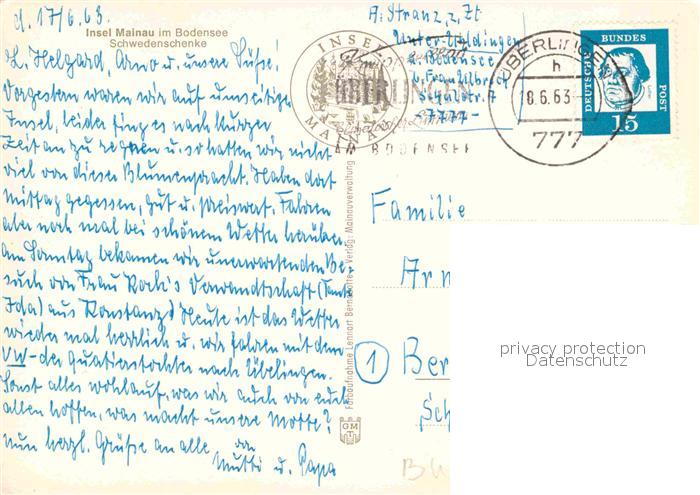 d. 17/6.63.
Insel Mainau im Bodensee
Schwedenschenke
L. Helgard, Arno u. unsere Süße!
Vorgestern waren wir auf umseitiger
Insel, leider fing es nach kurzer
Zeit an zu regnen u. so hatten wir nicht
viel von dieser Blumenpracht. Haben dort
mittag gegessen, gut u. preiswert. Fahren
aber noch mal bei schönem Wetter
am Sonntag bekamen wir unerwarteten Be-
such von Frau Verwandtschaft (Tante
Ida) aus Konstanz, Heute ist das Wetter
wieder mal herrlich u. wir fahren mit dem
VW- der Quartierstochter nach Überlingen.
Sonst alles wohlauf, was wir auch von euch
allen hoffen, was macht unsere Motte?
nun herzl. Grüße an alle von
Mutti u. Papa
A. Stranz, z. Zt
Unter-Uhldingen
a. Bodensee
b. Frau
7
-7777-
INSEL
MAINAU
ÜBERLINGEN
BODENSEE
ÜBERLINGEN
h
18.6.63-
777
DEUTSCHE BUNDESPOST
15
Farbaufnahme Lennart Bernadotte - Verlag: Mainauverwaltung
GMT
Familie
Ar
1 Ber
Sch
privacy protection
Datenschutz